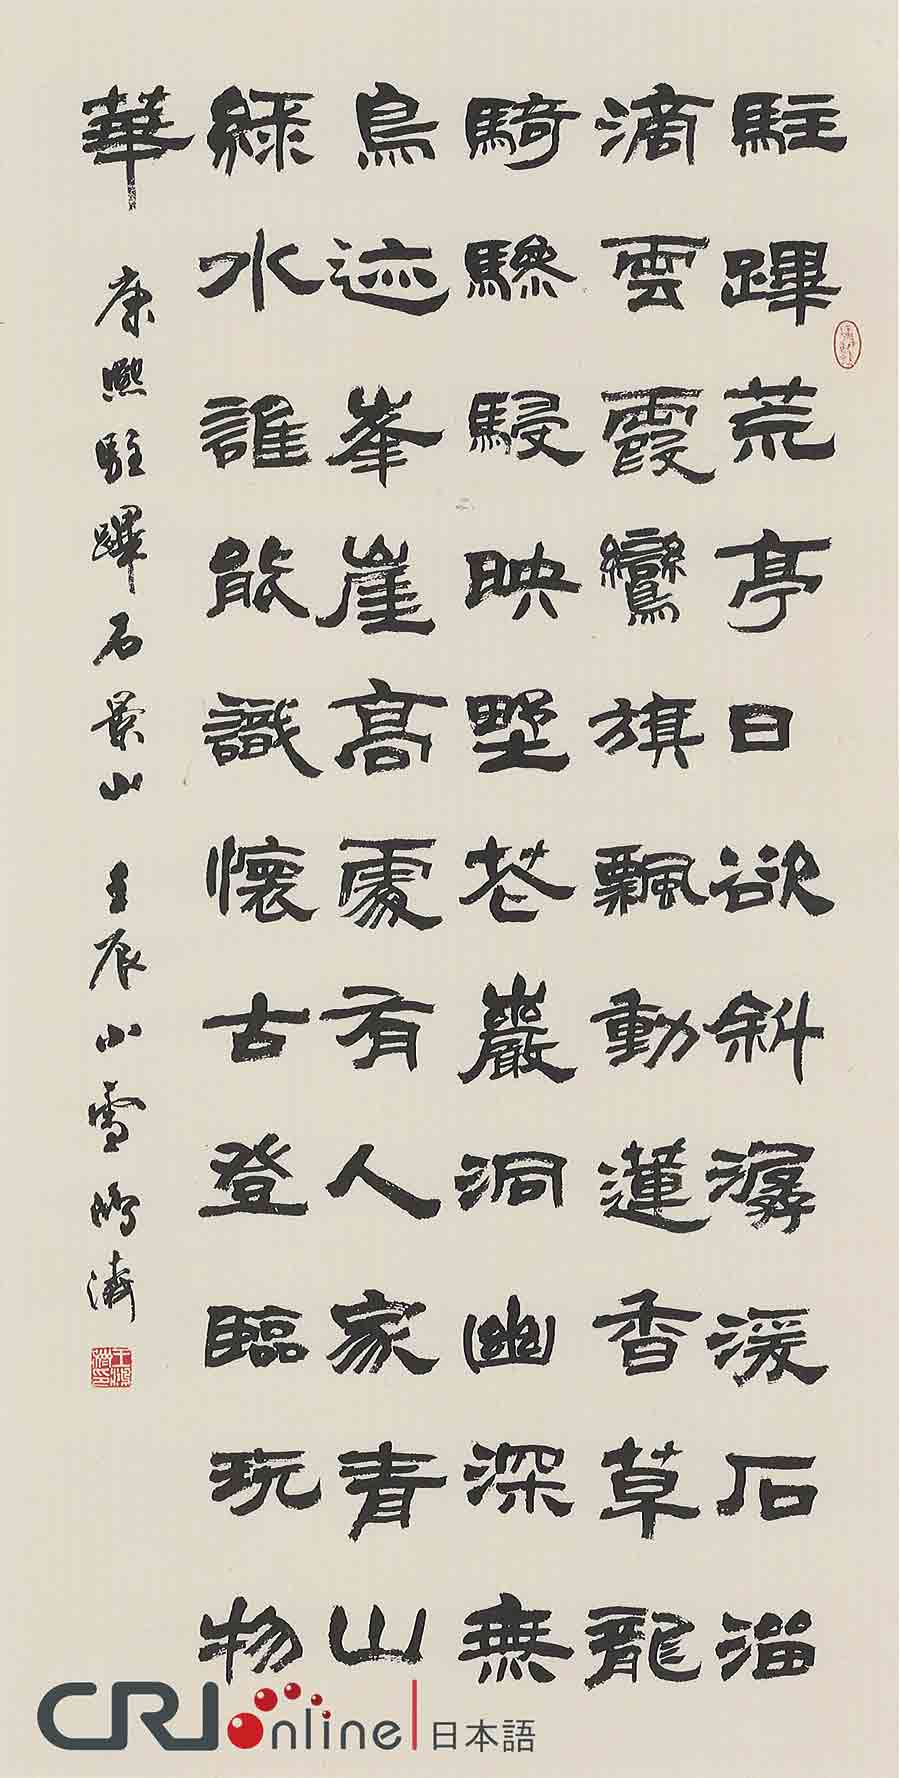 駐蹕荒亭日欲斜潺湲石溜
滴雲霞鸞旗飄動蓮香草龍
騎驂駸映野花巖洞幽深無
鳥迹峯崖高處有人家青山
綠水誰能識懷古登臨玩物
華
康熙駐蹕石景山 壬辰小雪鴻濤
CRI online 日本語